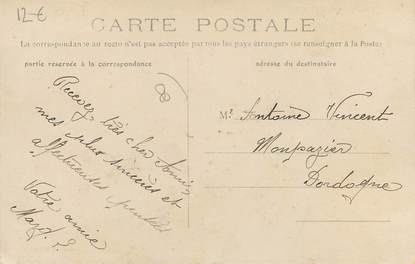 12-€
CARTE POSTALE
La correspondance au recto n'est pas acceptée par tous les pays étrangers (se renseigner à la Poste)
partie reservée à la correspondance
adresse du destinataire
Recevez, très cher
mes plus sincères et
affectueuses pensées
Votre amie
M. Antoine Vincent
Monpazier
Dordogne